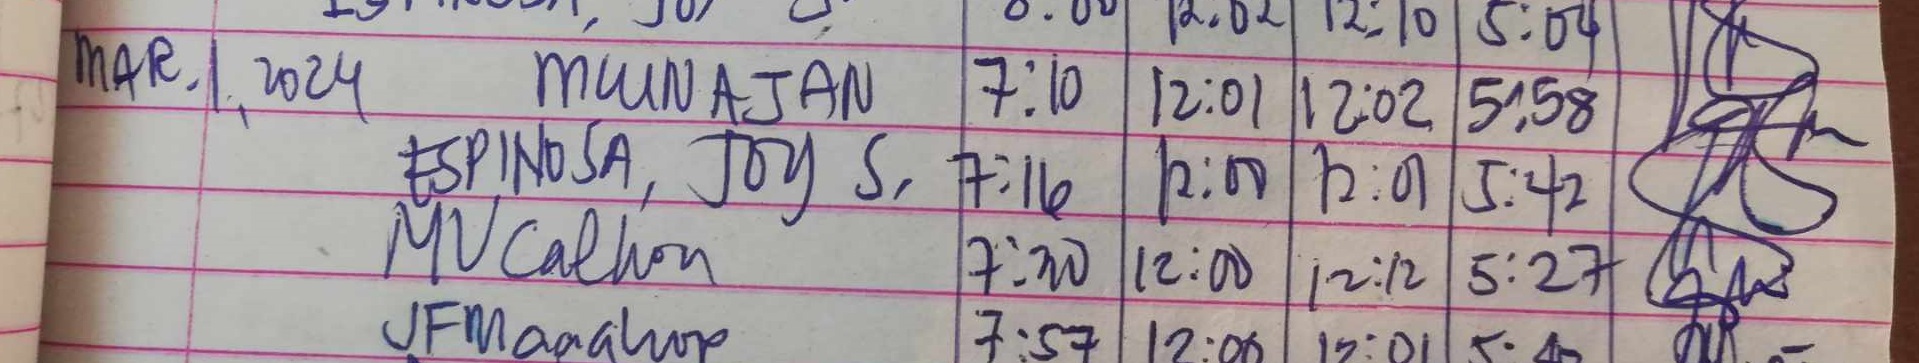 ESPINOSA, JOY S. 8:00 12:02 12:10 5:04
MAR. 1, 2024 MWNAJAN 7:10 12:01 12:02 5:58
ESPINOSA, JOY S. 7:16 12:00 12:01 5:42
MV Calhon 7:20 12:00 12:12 5:27
7:57 12:00 12:01